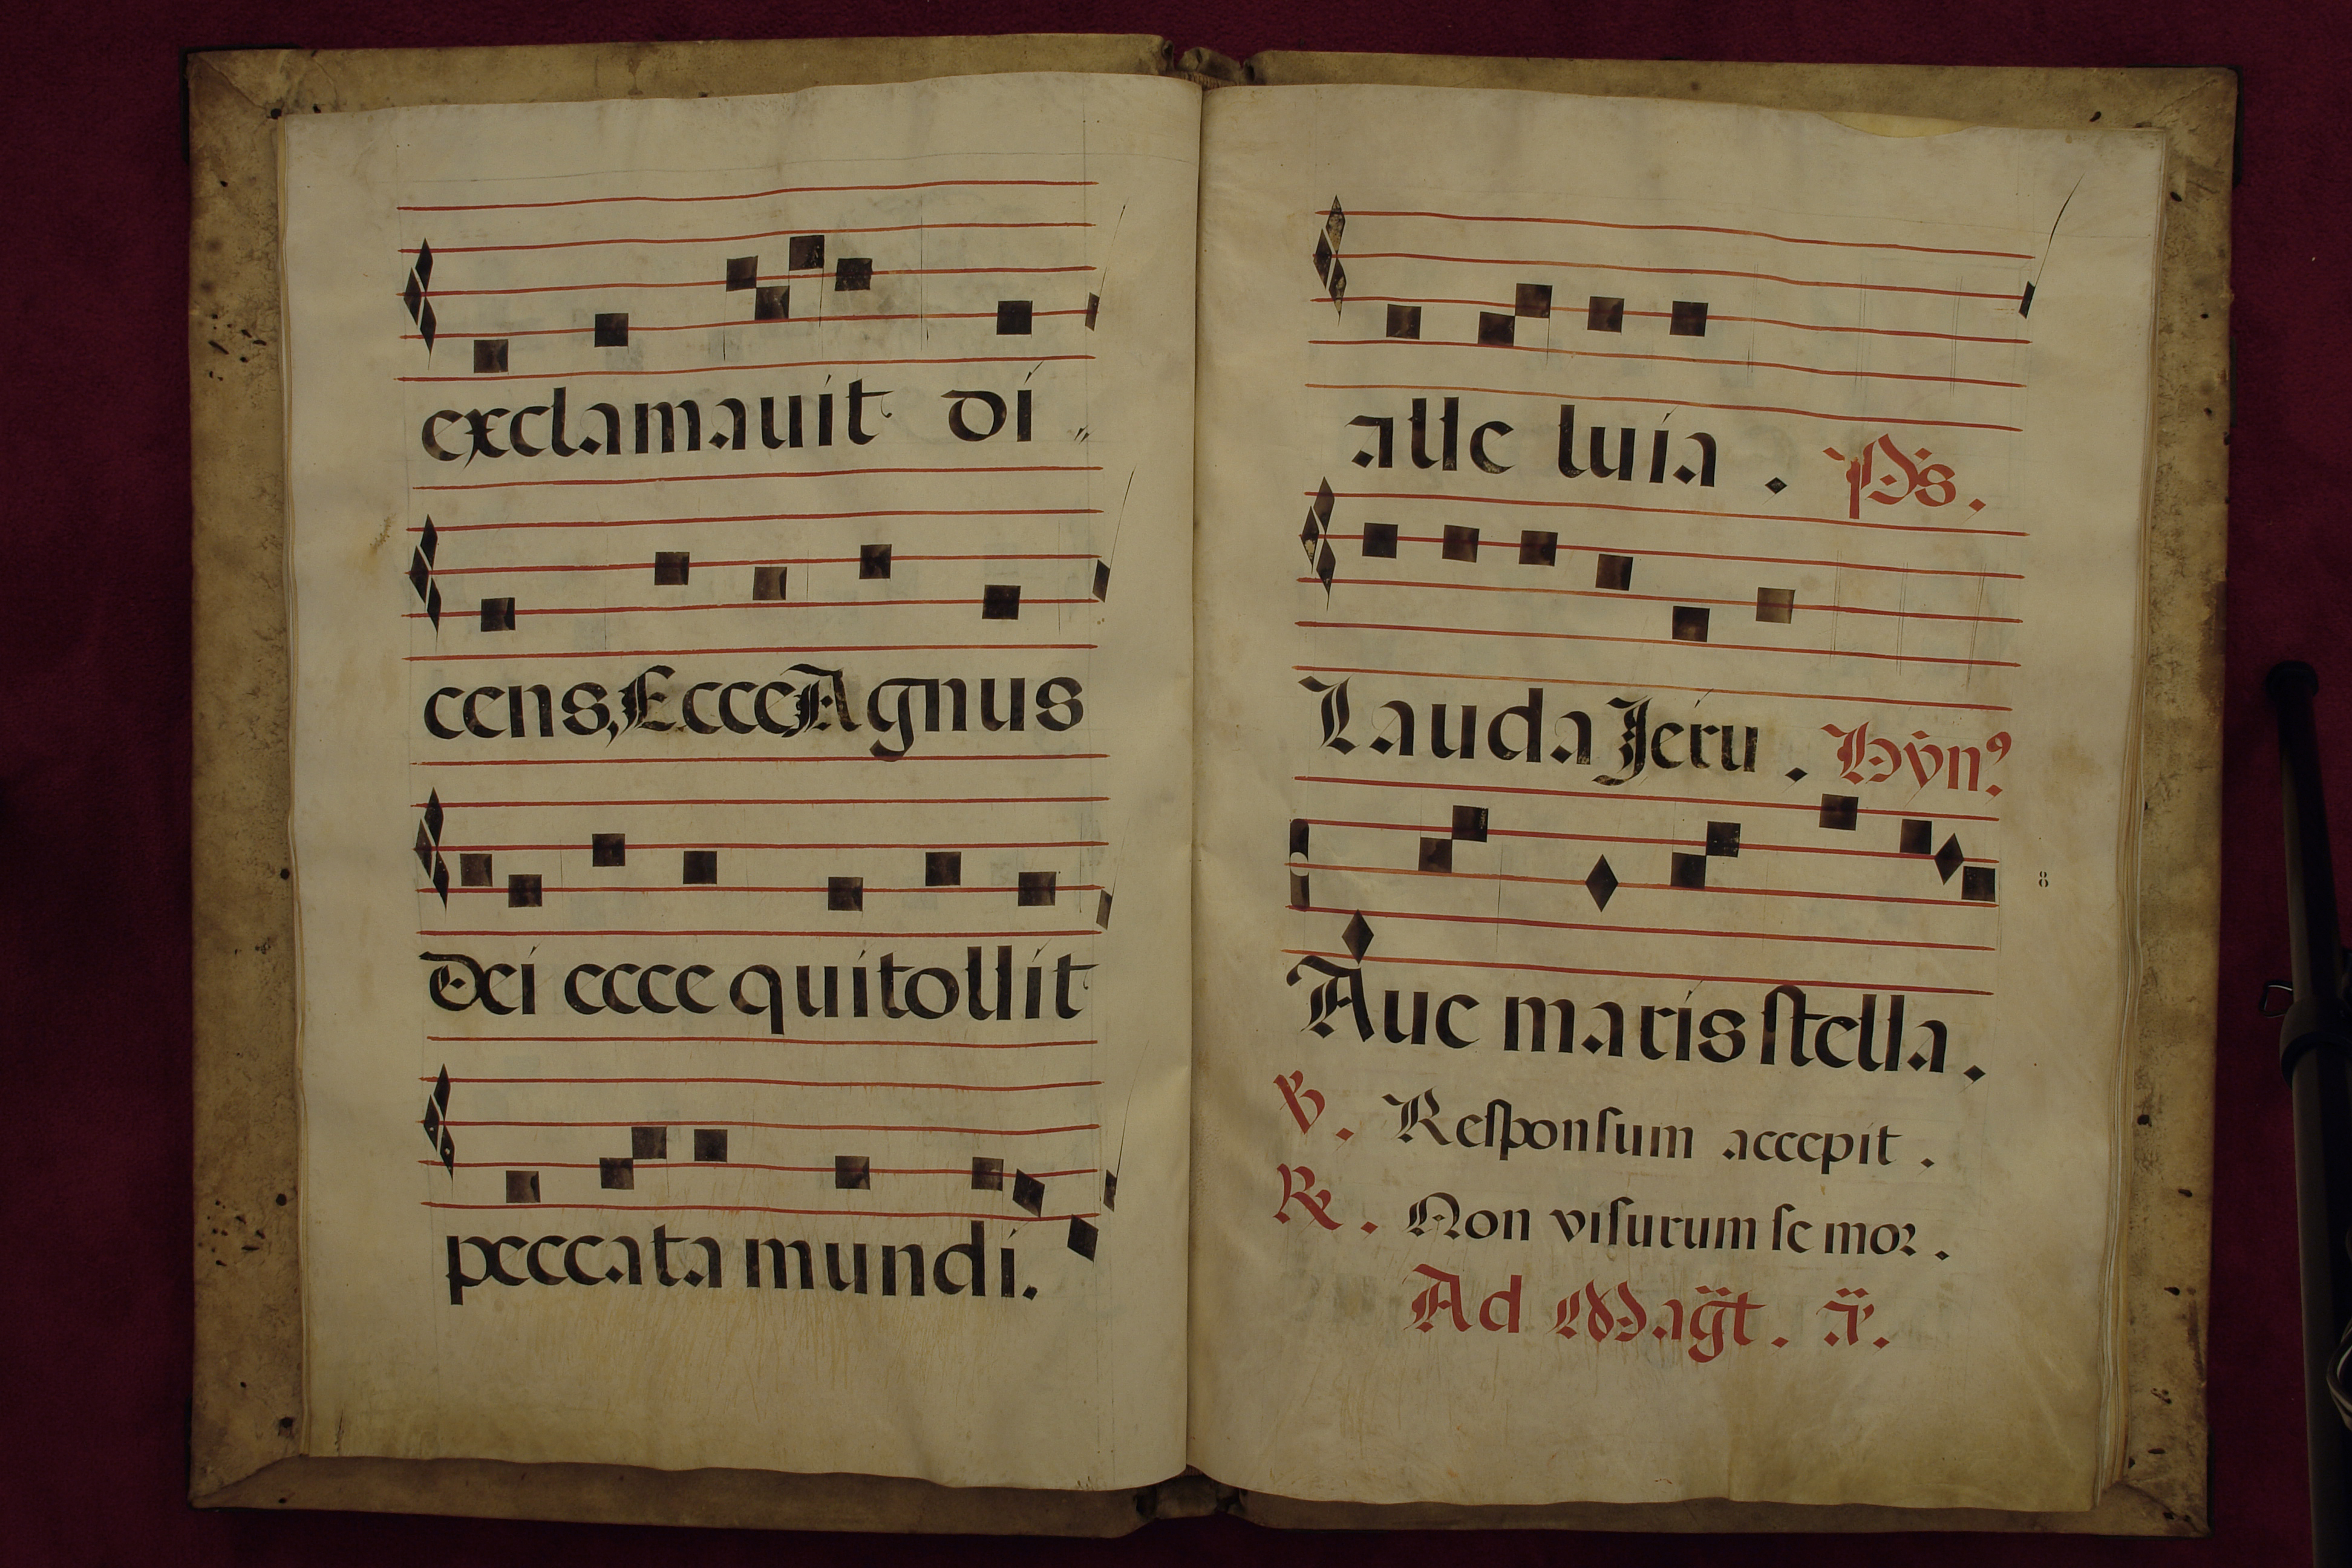 exclamauit di
cens, Ecce Agnus
Dei ecce qui tollit
peccata mundi.
alle luia . Ps.
Lauda Jeru . Hỹnꝰ.
8
Aue maris ſtella.
℣. Reſponſum accepit .
℟. Non viſurum ſe moꝛ .
Ad Mag̈t . ã.